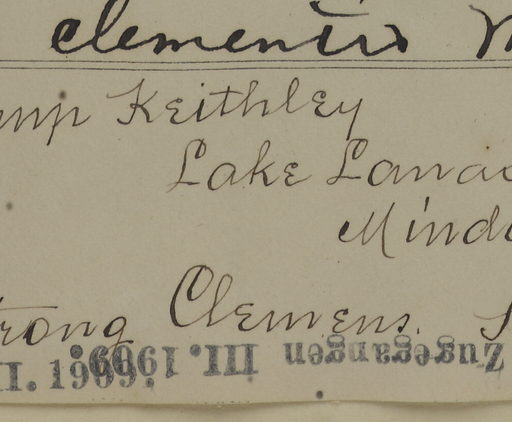 clementis M
mp Keithley
Lake Lanao
Minda
trong Clemens.
Zugegangen III. 1909.